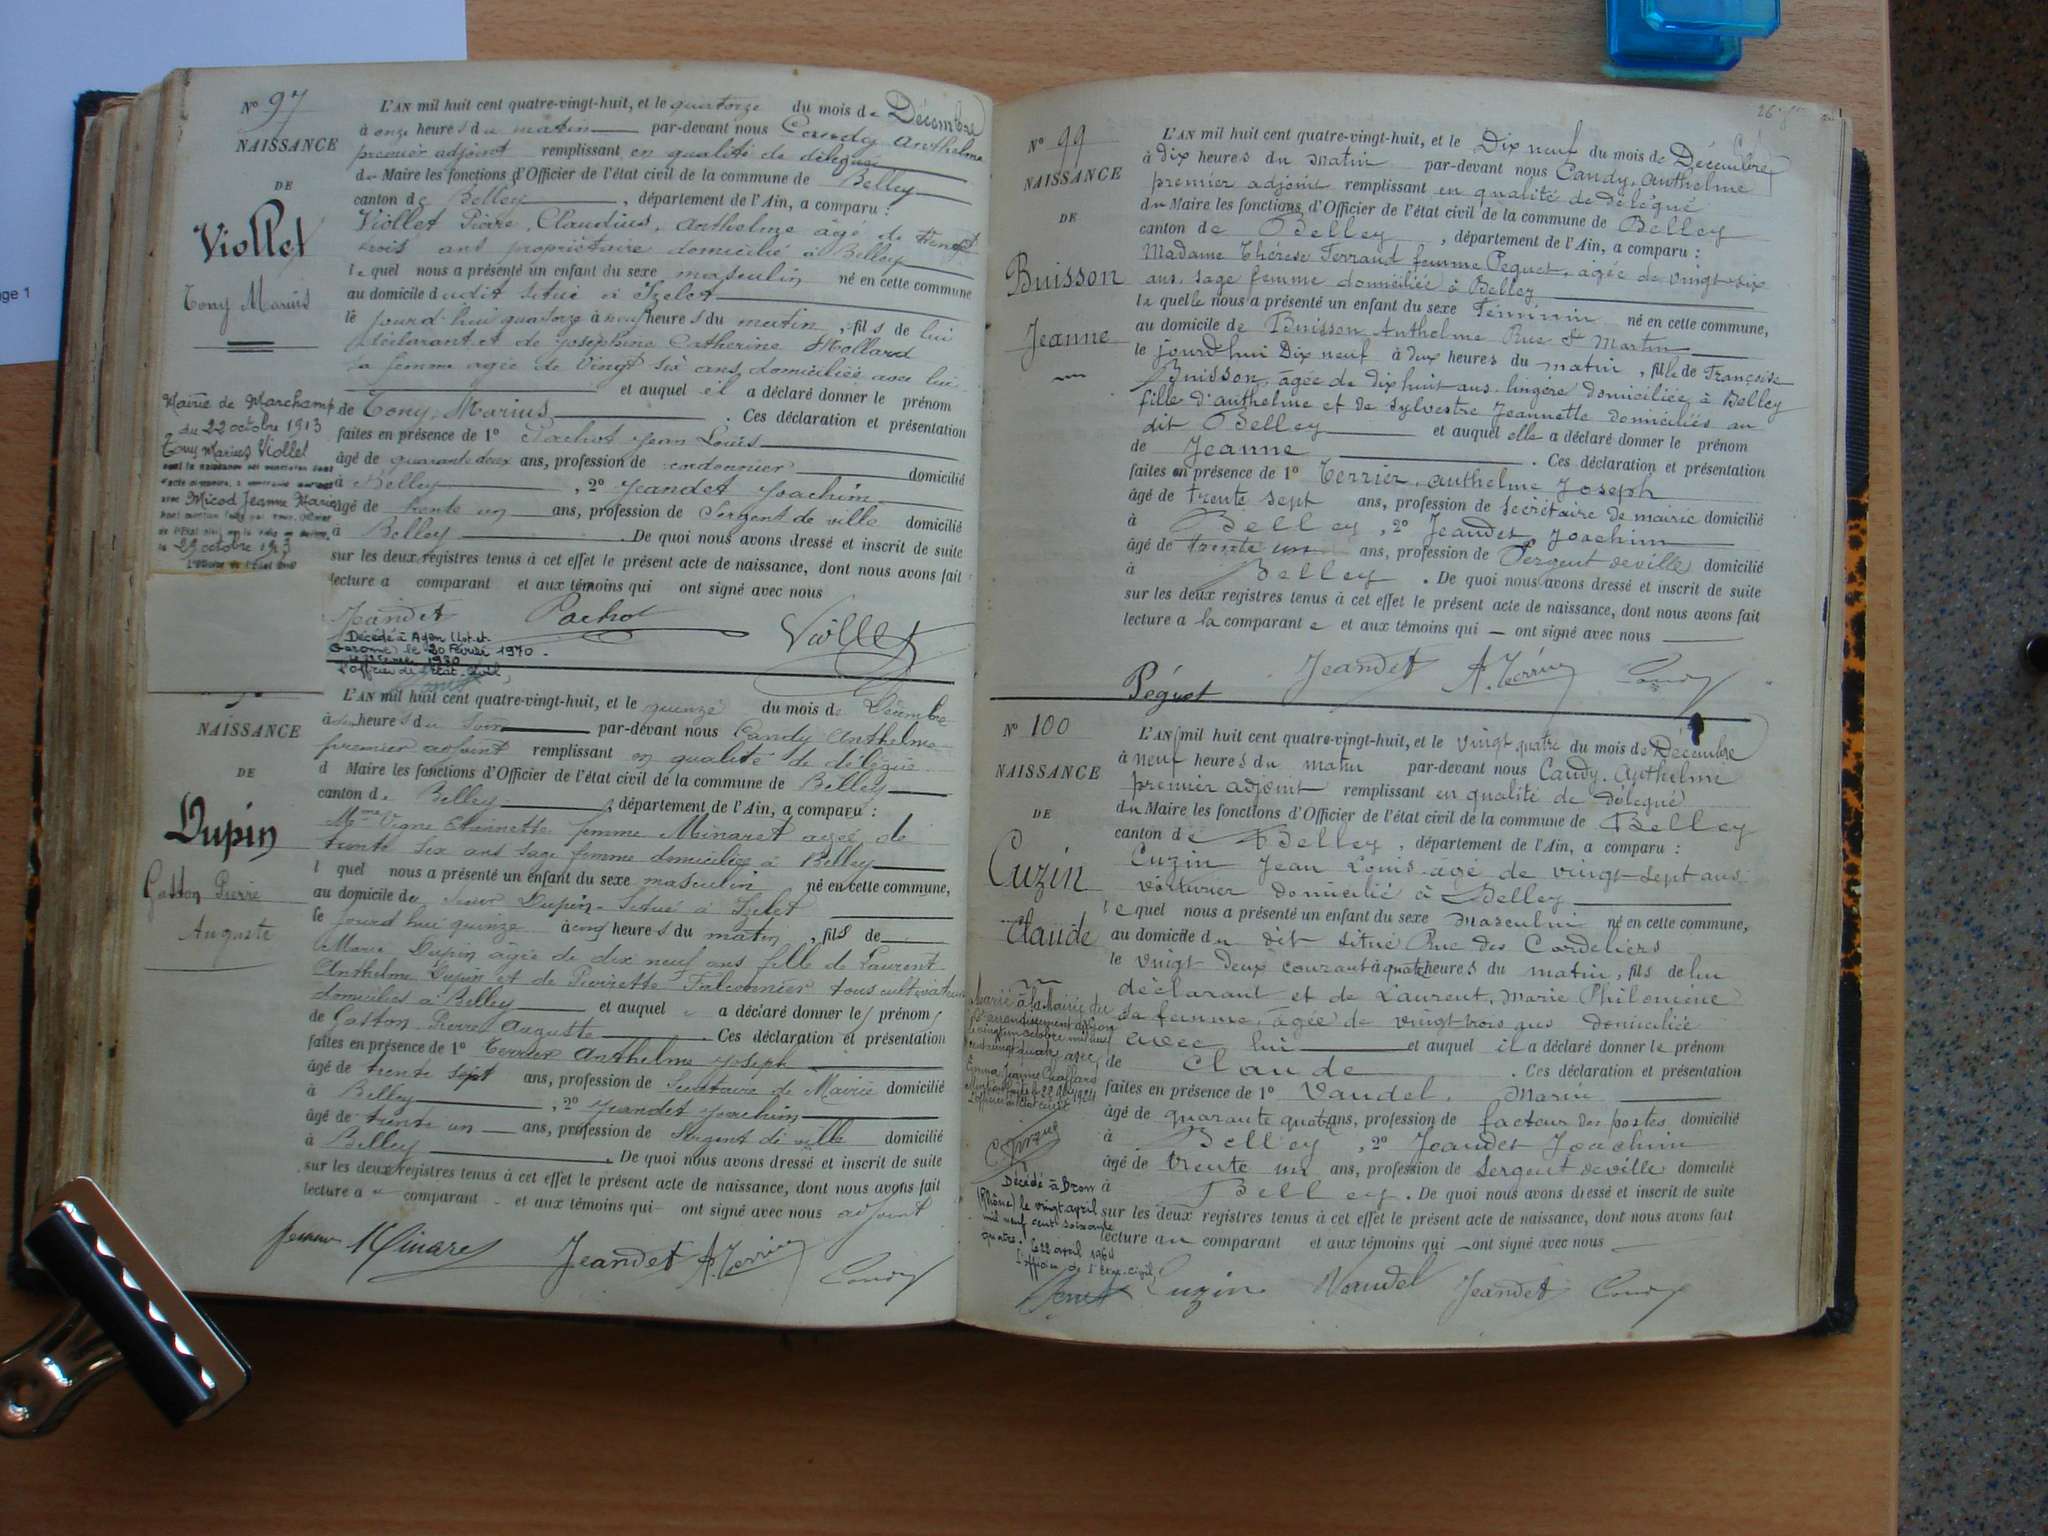 ge 1
N° 97
NAISSANCE
DE
Viollet
Tony Marius
L'AN mil huit cent quatre-vingt-huit, et le quatorze du mois de Décembre
à onze heures du matin par-devant nous Candy Anthelme
premier adjoint remplissant en qualité de délégué
de Maire les fonctions d'Officier de l'état civil de la commune de Belley
canton de Belley, département de l'Ain, a comparu :
Viollet Pierre, Claudius, Anthelme âgé de trente
trois ans propriétaire domicilié à Belley
lequel nous a présenté un enfant du sexe masculin né en cette commune
au domicile dudit situé à Izelet
le jourd'hui quatorze à neuf heures du matin, fils de lui
déclarant et de Joséphine Catherine Mollard
sa femme agée de vingt six ans, domiciliée avec lui
et auquel il a déclaré donner le prénom
de Tony, Marius. Ces déclaration et présentation
faites en présence de 1° Pachot Jean Louis
âgé de quarante deux ans, profession de cordonnier domicilié
à Belley, 2° Jeandet Joachim
âgé de trente un ans, profession de Sergent de ville domicilié
à Belley. De quoi nous avons dressé et inscrit de suite
sur les deux registres tenus à cet effet le présent acte de naissance, dont nous avons fait
lecture a comparant et aux témoins qui ont signé avec nous
Jeandet Pachot Viollet
Mairie de Marchamp
du 22 octobre 1913
Tony Marius Viollet
avec Micod Jeanne Marie
le 29 octobre 1913
L'Officier de l'Etat Civil
Décédé à Agen (Lot-et-
Garonne) le 20 Février 1970.
L'officier de l'état-civil,
NAISSANCE
DE
Dupin
Gaston Pierre
Auguste
L'AN mil huit cent quatre-vingt-huit, et le quinze du mois de Décembre
à heures du soir par-devant nous Candy Anthelme
premier adjoint remplissant en qualité de délégué
d Maire les fonctions d'Officier de l'état civil de la commune de Belley
canton de Belley, département de l'Ain, a comparu :
Mme Vigne Etiennette femme Minaret agée de
trente six ans sage femme domiciliée à Belley
l quel nous a présenté un enfant du sexe masculin né en cette commune,
au domicile du sieur Dupin situé à Izelet
le jourd'hui quinze à cinq heures du matin, fils de
Marie Dupin âgée de dix neuf ans fille de Laurent
Anthelme Dupin et de Pierrette Falconnier tous cultivateurs
domiciliés à Belley et auquel a déclaré donner le prénom
de Gaston Pierre Auguste. Ces déclaration et présentation
faites en présence de 1° Terrier Anthelme Joseph
âgé de trente sept ans, profession de Secrétaire de Mairie domicilié
à Belley, 2° Jeandet Joachim
âgé de trente un ans, profession de Sergent de ville domicilié
à Belley. De quoi nous avons dressé et inscrit de suite
sur les deux registres tenus à cet effet le présent acte de naissance, dont nous avons fait
lecture a comparant et aux témoins qui ont signé avec nous adjoint
femme Minaret Jeandet A. Terrier Candy
N° 99
NAISSANCE
DE
Buisson
Jeanne
L'AN mil huit cent quatre-vingt-huit, et le Dix neuf du mois de Décembre
à dix heures du matin par-devant nous Candy, Anthelme
premier adjoint remplissant en qualité de délégué
du Maire les fonctions d'Officier de l'état civil de la commune de Belley
canton de Belley, département de l'Ain, a comparu :
Madame Thérèse Ferraud femme Peguet, agée de vingt-six
ans, sage femme domiciliée à Belley
laquelle nous a présenté un enfant du sexe Féminin né en cette commune,
au domicile de Buisson Anthelme Rue St Martin
le jourd'hui Dix neuf à deux heures du matin, fille de Françoise
Buisson, âgée de dix huit ans, lingère domiciliée à Belley
fille d'anthelme et de Sylvestre Jeannette domiciliés au
dit Belley et auquel elle a déclaré donner le prénom
de Jeanne. Ces déclaration et présentation
faites en présence de 1° Terrier, anthelme Joseph
âgé de trente sept ans, profession de secrétaire de mairie domicilié
à Belley, 2° Jeandet Joachim
âgé de trente un ans, profession de Sergent deville domicilié
à Belley. De quoi nous avons dressé et inscrit de suite
sur les deux registres tenus à cet effet le présent acte de naissance, dont nous avons fait
lecture a la comparante et aux témoins qui ont signé avec nous
Péguet Jeandet A. Terrier Candy
N° 100
NAISSANCE
DE
Cuzin
Claude
L'AN mil huit cent quatre-vingt-huit, et le vingt quatre du mois de Décembre
à neuf heures du matin par-devant nous Candy, Anthelme
premier adjoint remplissant en qualité de délégué
du Maire les fonctions d'Officier de l'état civil de la commune de Belley
canton de Belley, département de l'Ain, a comparu :
Cuzin Jean Louis âgé de vingt-sept ans
voiturier domicilié à Belley
lequel nous a présenté un enfant du sexe masculin né en cette commune,
au domicile du dit situé Rue des Cordeliers
le vingt deux courant à quatre heures du matin, fils de lui
déclarant et de Laurent, Marie Philomène
sa femme, âgée de vingt trois ans domiciliée
avec lui et auquel il a déclaré donner le prénom
de Claude. Ces déclaration et présentation
faites en présence de 1° Vaudel, Marin
âgé de quarante quatre ans, profession de facteur des postes domicilié
à Belley, 2° Jeandet Joachim
âgé de trente un ans, profession de Sergent deville domicilié
à Belley. De quoi nous avons dressé et inscrit de suite
sur les deux registres tenus à cet effet le présent acte de naissance, dont nous avons fait
lecture au comparant et aux témoins qui ont signé avec nous
Cuzin Vaudel Jeandet Candy
Marié à la Mairie du
arrondissement de Lyon
le vingt un octobre mil neuf
cent vingt quatre avec
Emma Jeanne Chaffard
Décédé à Bron
(Rhône) le vingt avril
mil neuf cent soixante
quatre. le 22 avril 1964
L'officier de l'Etat-civil,